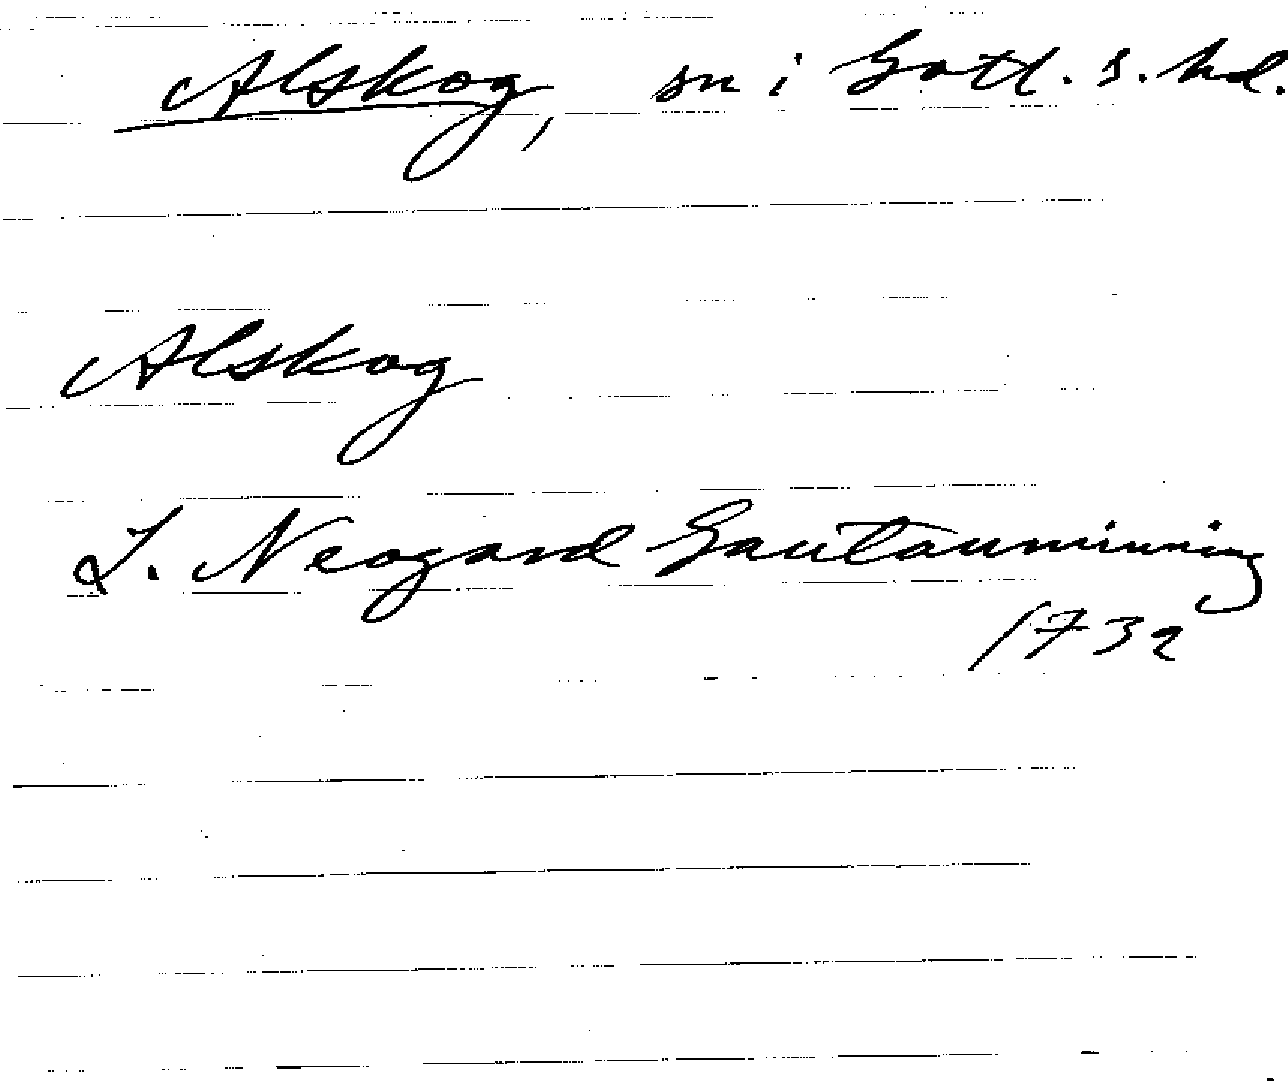 Alskog, sn i Gotl. s. hd.
Alskog
J. Neogard Gautauminning
1732